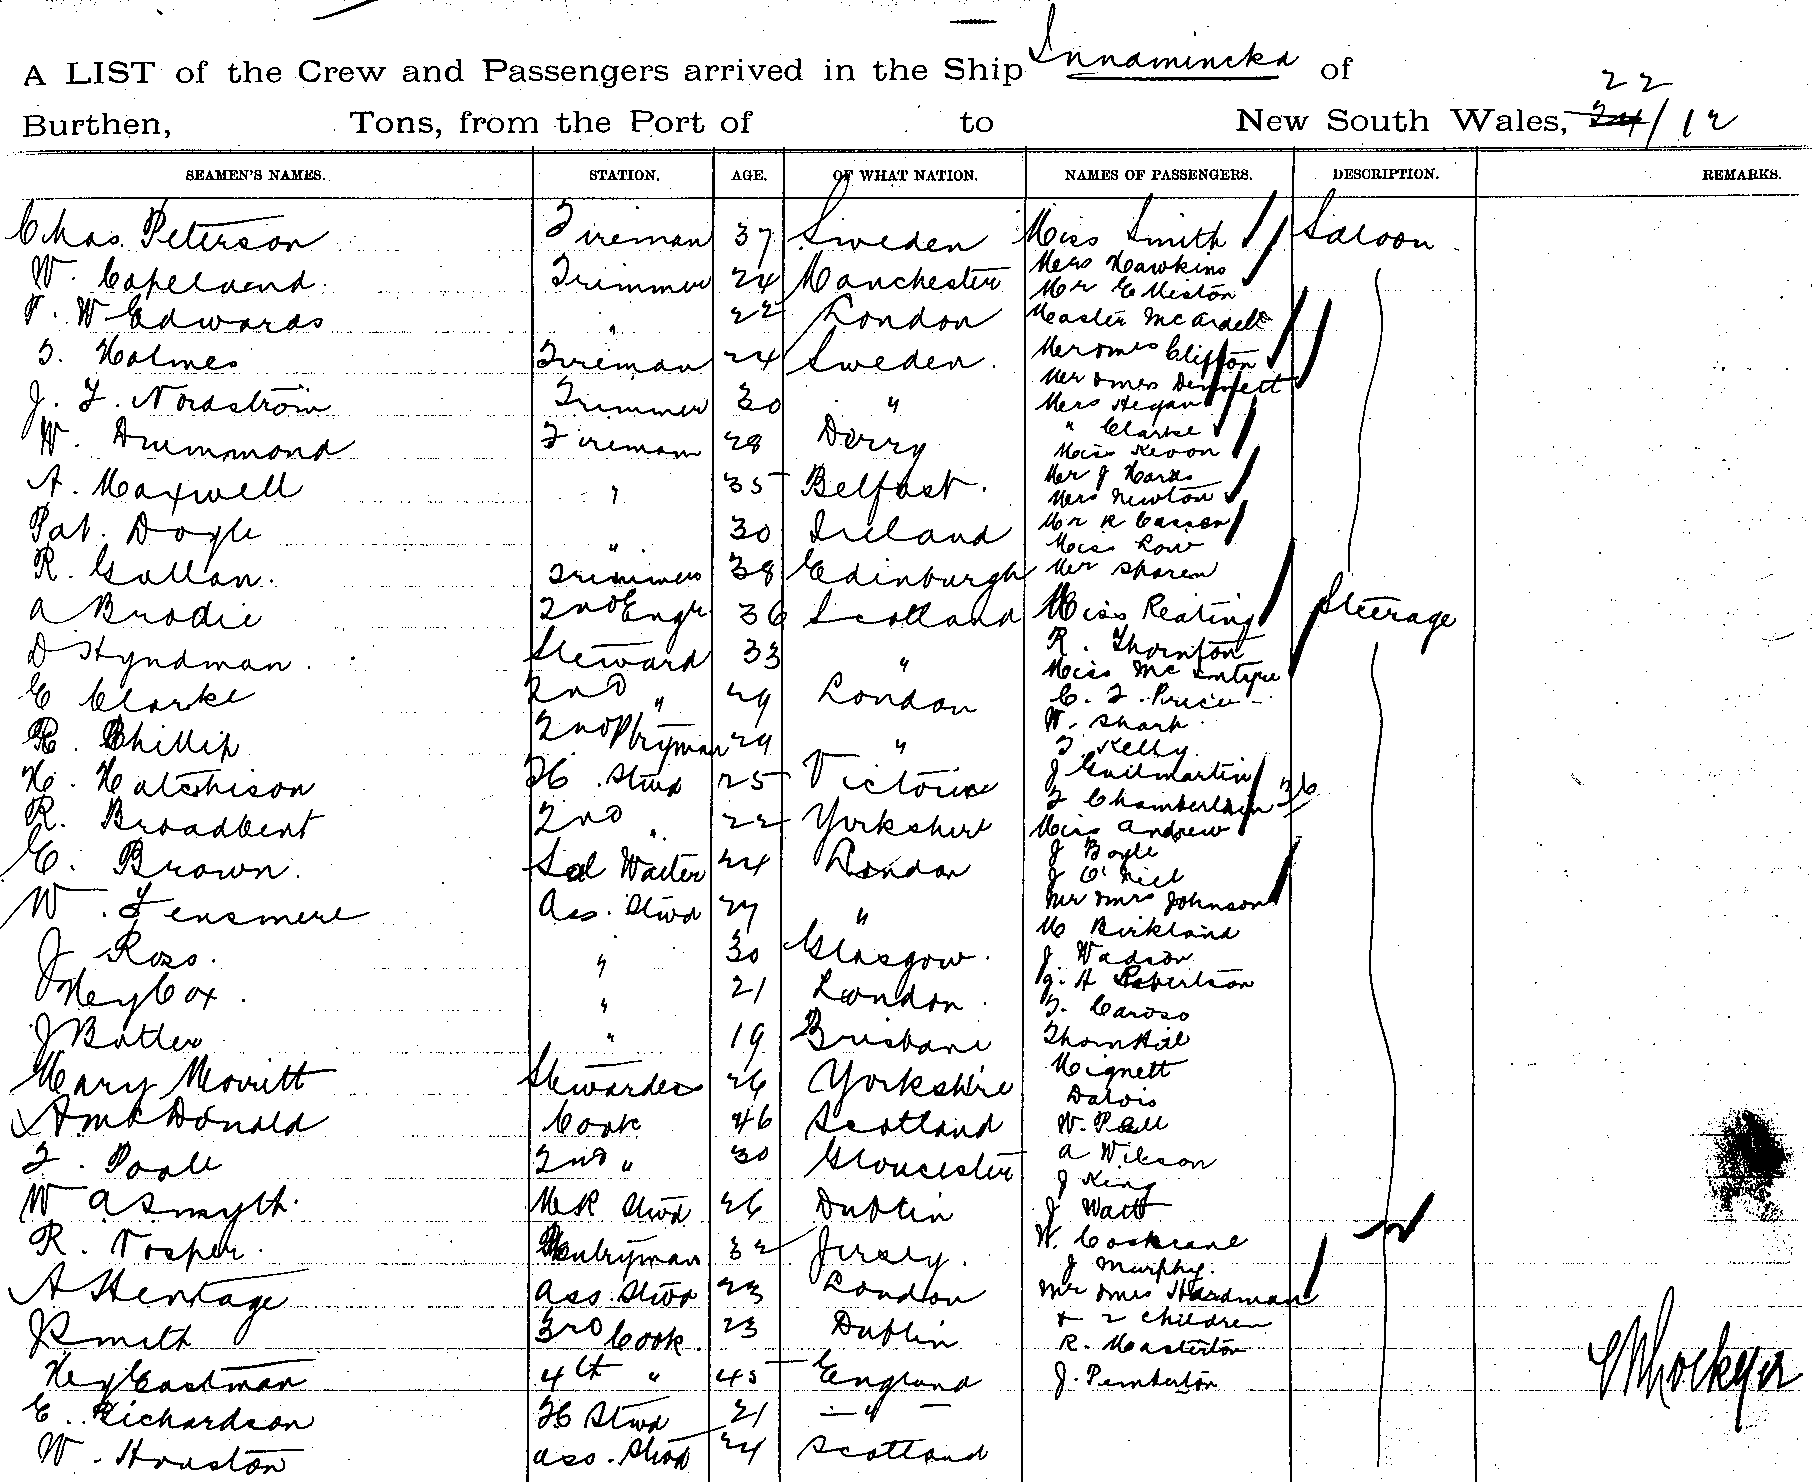 A LIST of the Crew and Passengers arrived in the Ship Innamincka of
22
Burthen, Tons, from the Port of to New South Wales, 24/12
SEAMEN'S NAMES. STATION. AGE. OF WHAT NATION. NAMES OF PASSENGERS. DESCRIPTION. REMARKS.
Chas. Peterson Fireman 37 Sweden Miss Smith Saloon
W. Copeland Trimmer 24 Manchester Mrs Hawkins
Mr E Meston
F. W Edwards " 22 London Master McArdell
T. Holmes Fireman 24 Sweden. Mr & Mrs Clifton
Mr & Mrs Dennett
J. F. Nordström Trimmer 30 " Mrs Hegan
W. Drummond Fireman 28 Derry " Clarke
Miss Keoon
A. Maxwell " 35 Belfast. Mr J Hards
Mrs Newton
Pat. Doyle " 30 Ireland Mr R Casson
Miss Low
R. Gullan. Trimmer 38 Edinburgh Mr Sharem
A Brodie 2nd Engr 36 Scotland Miss Keating Steerage
D Hyndman. Steward 33 " R. Thornton
Miss McIntyre
E Clarke 2nd " 29 London C. F. Price
W. Shark
R. Phillip 2nd Ptryman 29 " T. Kelly.
H. Hatchison FC. Stwd 25 Victoria J Guilmartin
F Chamberlain 36
R. Broadbent 2nd " 22 Yorkshire Miss Andrew
E. Brown. Sal Waiter 24 London J Boyle
J O'Neil
W. Fensmere Ass. Stwd 27 " Mr & Mrs Johnson
M Birkland
J Ross. " 30 Glasgow. J. Wadson
Hey Cox. " 21 London. J. A Robertson
F. Caroso
J Butler " 19 Brisbane Thornhill
Mary Merritt Stewardess 26 Yorkshire Mignett
Dalois
A McDonald Cook 46 Scotland W. Pell
F. Poole 2nd " 30 Gloucester A Wilson
J King
W A Smyth. MR Stwd 26 Dublin J Watt
R. Vosper. Pantryman 32 Jersey. W. Cockrane
J Murphy.
A Heritage Ass. Stwd 23 London Mr & Mrs Hardman
& 2 children
J Smith 3rd Cook. 23 Dublin R. Masterton
Hey Eastman 4th " 45 England J. Pemberton
E. Richardson FC Stwd 21 — " —
W. Houston Ass. Stwd 24 Scotland